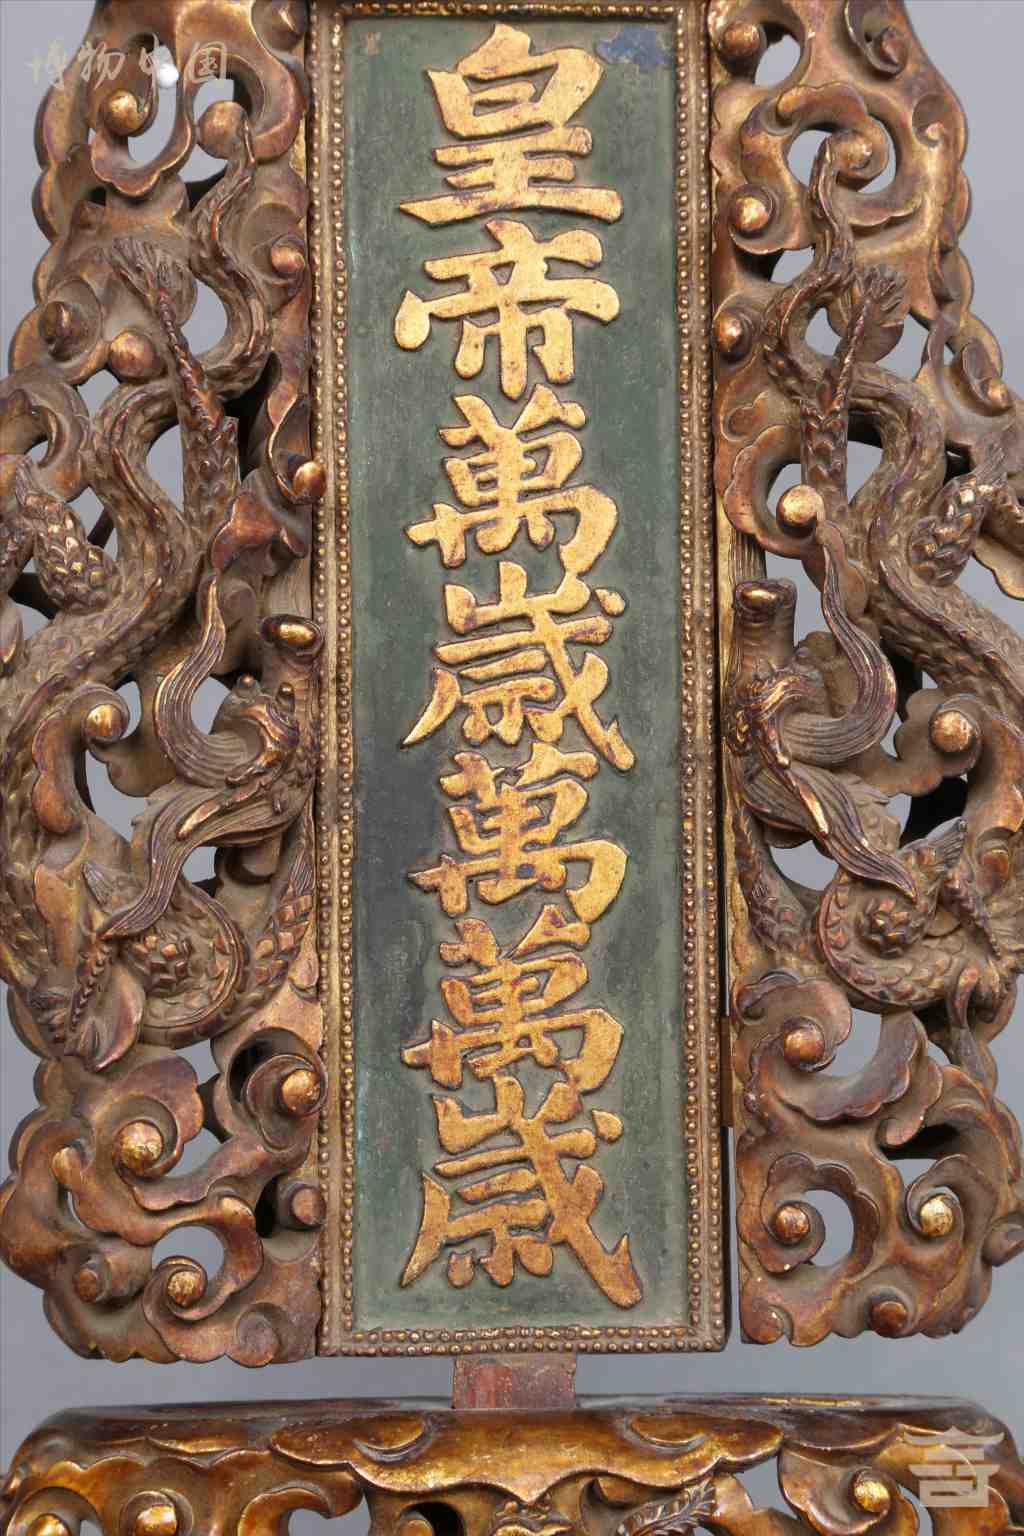 博物中国
皇帝萬歲萬萬歲